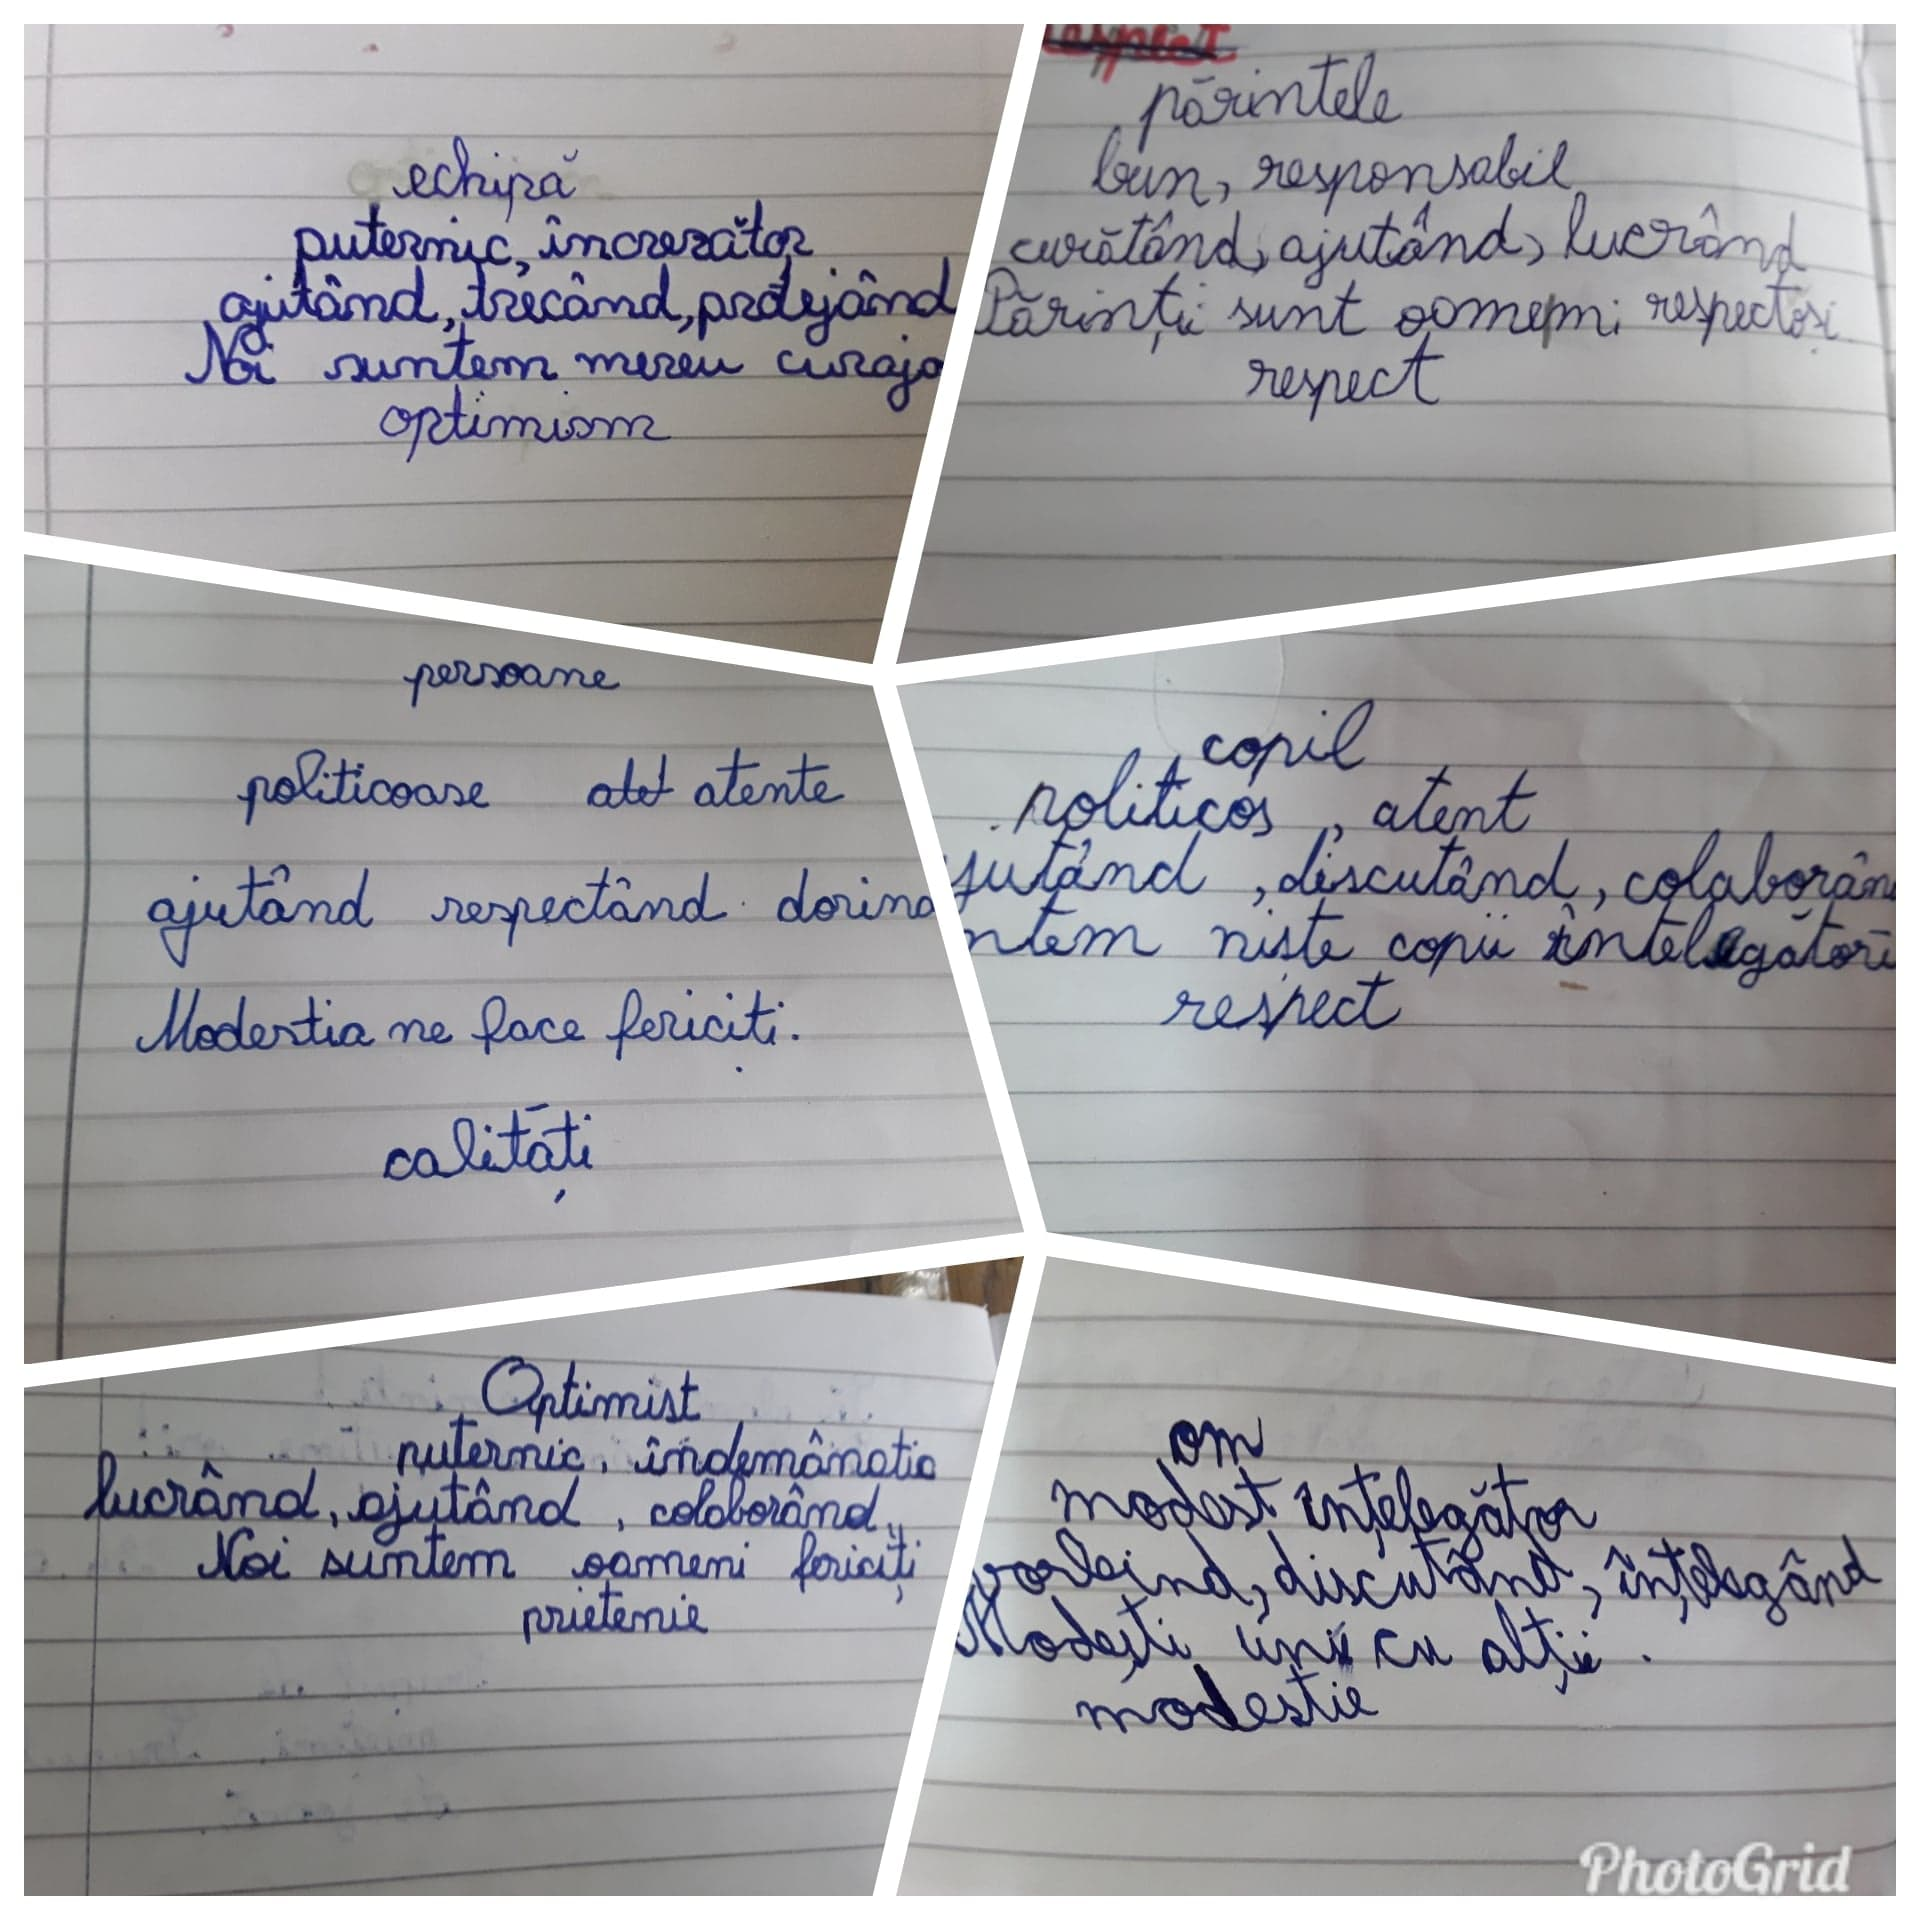 echipă
puternic, încrezător
ajutând, trecând, protejând
Noi suntem mereu curajo
optimism
respect
părintele
bun, responsabil
curătând, ajutând, lucrând
Părinții sunt oameni respectosi
respect
persoane
politicoase atet atente
ajutând respectând dorind
Modestia ne face fericiți.
calități
copil
politicos, atent
jutând, discutând, colaborân
ntem niste copii întelegători
respect
Optimist
puternic, îndemânatic
lucrând, ajutând, colaborând,
Noi suntem oameni fericiți
prietenie
om
modest înțelegător
vorbind, discutând, înțelegând
Modești unii cu alții.
modestie
PhotoGrid